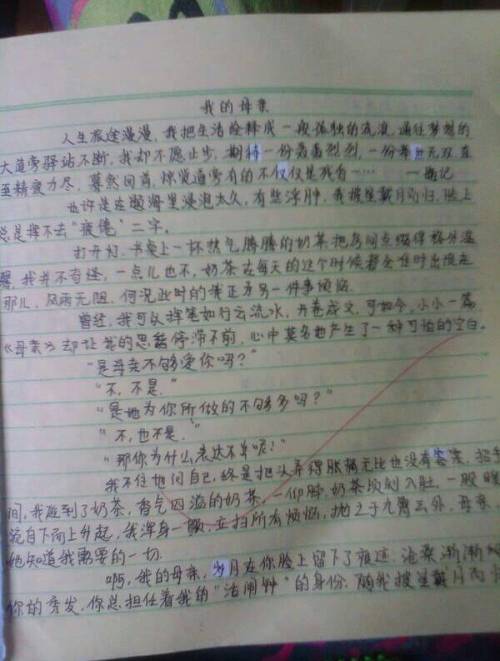 我的母亲
人生旅途漫漫,我把生活诠释成一瘦孤独的流浪,通往梦想的
大道旁驿站不断,我却不愿止步,期待一份轰轰烈烈,一份举世无双,直
至精疲力尽,蓦然回首,惊觉道旁有的不仅仅是我有…… 一题记
也许是在题海里浸泡太久,有些浮肿,我披星戴月而归,脸上
总是挥不去"疲倦"二字。
打开灯,书桌上一杯热气腾腾的奶茶把房间点缀得格外温
馨,我并不奇怪,一点儿也不,奶茶在每天的这个时候都会准时出现在
那儿,风雨无阻,何况此时的我正为另一件事烦恼。
曾经,我可以挥笔如行云流水,开卷成文,可如今,小小一篇
《母亲》却让我的思蓄停滞不前,心中莫名地产生了一种可怕的空白。
"是母亲不够爱你吗?"
"不,不是."
"是她为你所做的不够多吗?"
"不,也不是."
"那你为什么表达不单呢!"
我不住地问自己,终是把头弄得胀痛无比也没有答案,招手
间,我碰到了奶茶,香气四溢的奶茶,一仰脖,奶茶顷刻入肚,一股暖
流自下而上升起,我浑身一颤,立扫所有烦恼,抛之于九霄云外,母亲,
她知道我需要的一切.
啊,我的母亲,岁月在你脸上留下了痕迹,沧桑渐渐
你的秀发,你总担任着我的"活闹钟"的身份,随我披星戴月而